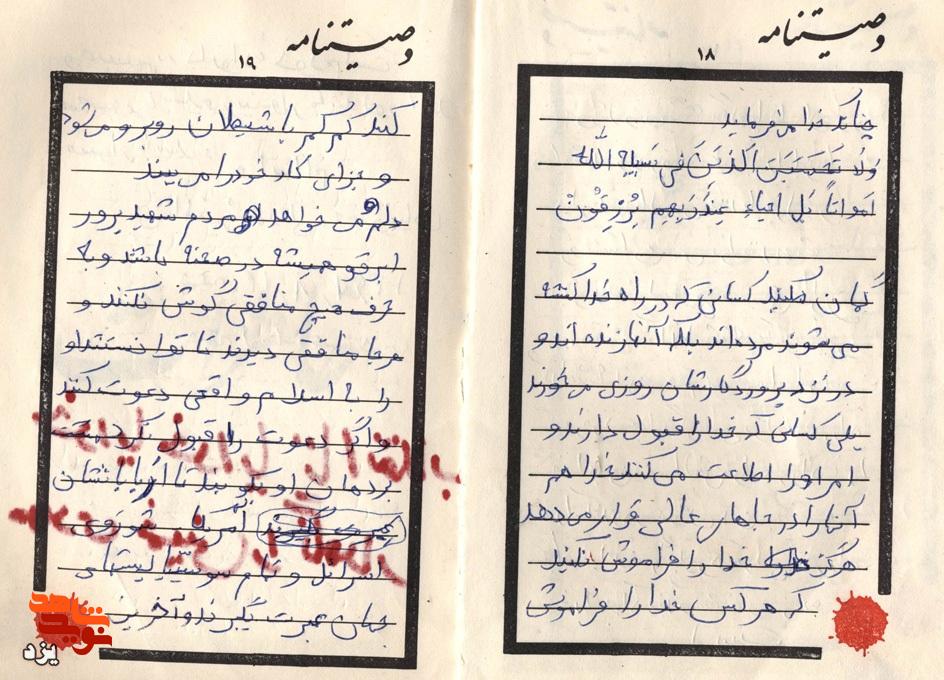 وصیتنامه
۱۸
چنانکه خدا میفرماید
وَلا تَحسَبَنَ اَلذینَ فی سَبیلِ اللّه
اَمواتاً بَل اَحیاء عِندَ رَبِهِم یُرزِقُونَ
گمان مکنید کسانی که در راه خدا کشته
می شوند مرده اند بلکه آنها زنده اند و
در نزد پروردگارشان روزی می خورند
بلی کسانی که خدا را قبول دارند و
امر او را اطاعت می کنند خدا هم
آنها را در جاهای عالی قرار می دهد
هرگز خدا را فراموش نکنید
که هر کس خدا را فراموش
وصیتنامه
۱۹
کند کم کم با شیطان روبرو می شود
و جزای کار خود را می بیند
دلم می خواهد مردم شهید پرور
ابرقو همیشه در صحنه باشند و به
حرف هیچ منافقی گوش نکنند و
هرجا منافقی دیدند تا توانستند او
را با اسلام واقعی دعوت کنند
و اگر دعوت را قبول نکرد مشت
بردهان او بکوبند تا اربابانشان
آمریکا شوروی
اسرائیل و تمام سوسیالیستهای
جهان عبرت بگیرند و آخرین
شاهد
نوید
یزد